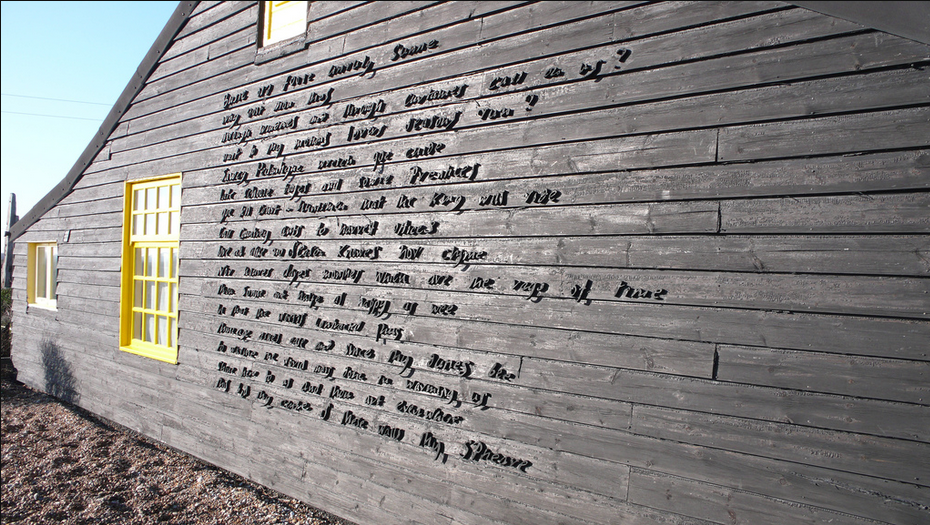 Busie old foole unruly Sunne
why dost thou thus
through windows and through curtaines call on us?
must to thy motions lovers seasons run?
Sawcy Pedantique wretch goe chide
late schoole boyes and sowre Prentices
goe tell Court-huntsmen that the King will ride
Call Country ants to harvest offices
love all alike no season knowes nor clyme
Nor houres dayes months which are the rags of time
thou Sunne art halfe as happy as wee
In that the world's contracted thus
thine age asks ease and since thy duties bee
to warme the world that's done in warming us
Shine here to us and thou art everywhere
this bed thy center is these walls thy Spheare